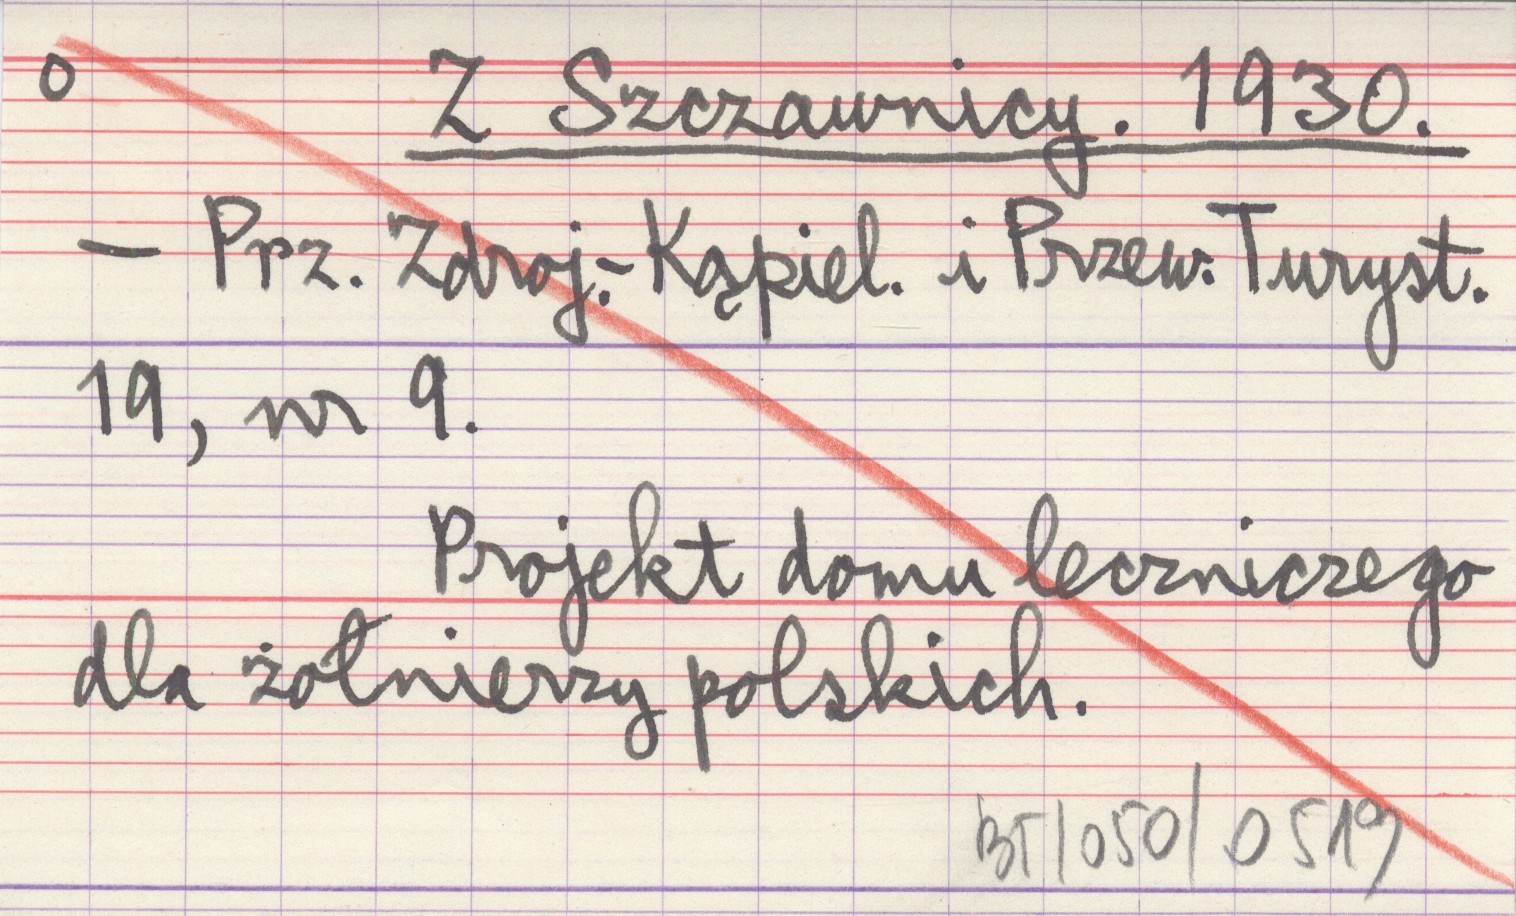 o Z Szczawnicy. 1930.
— Prz. Zdroj.-Kąpiel. i Przew. Turyst.
19, nr 9.
Projekt domu leczniczego
dla żołnierzy polskich.
BT/050/0519